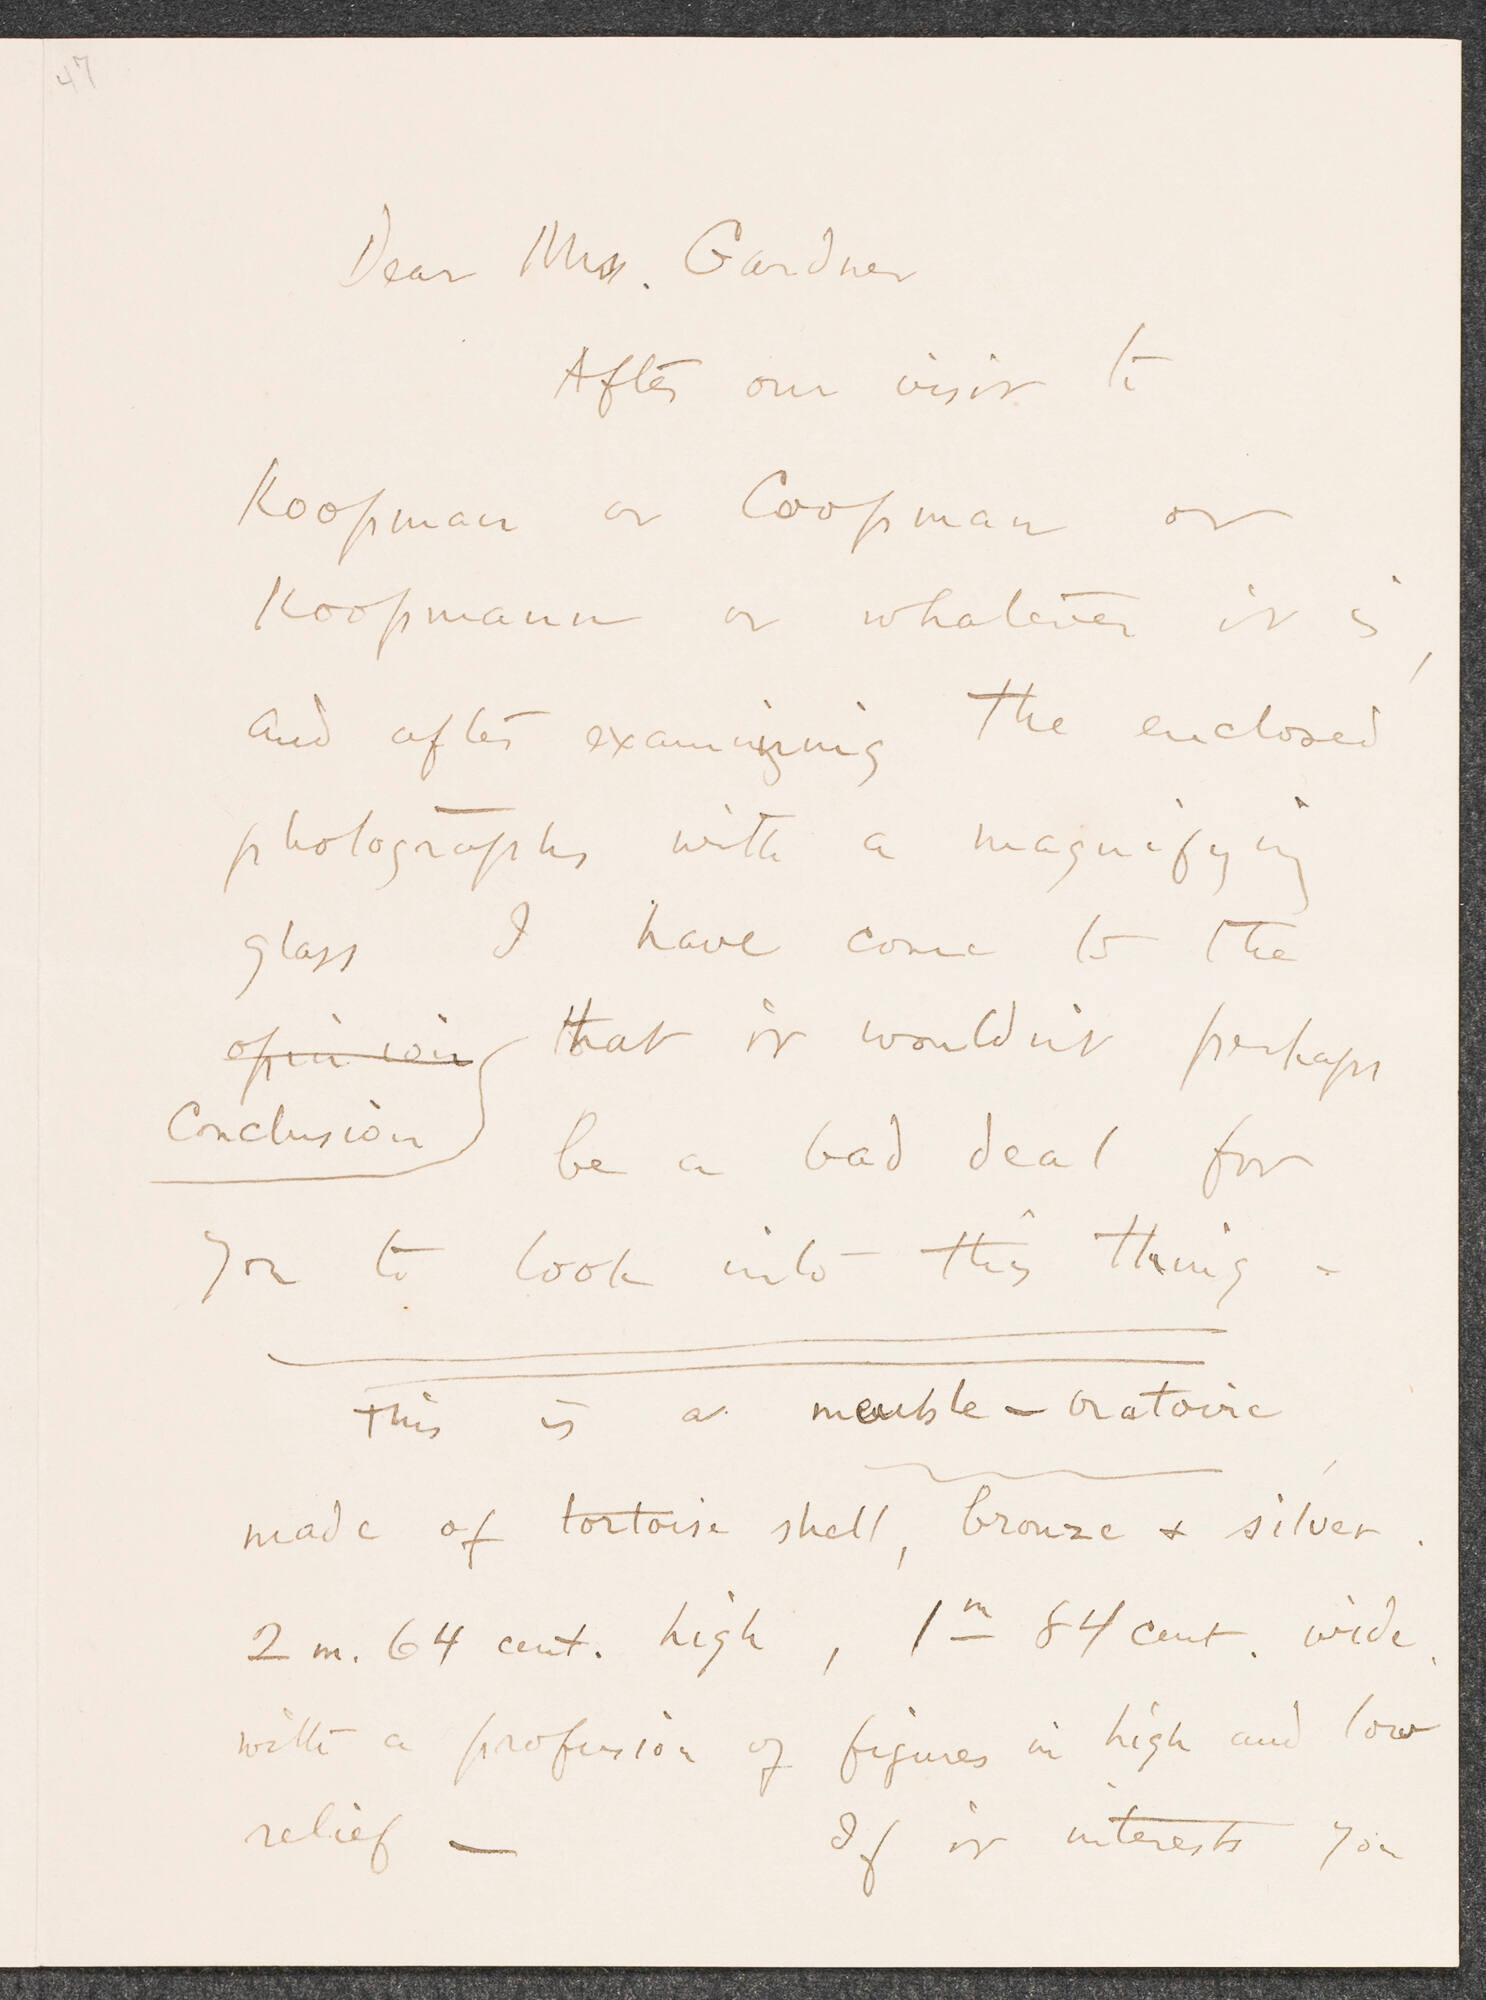 47
Dear Mrs. Gardner
After our visit to
Koopman or Coopman or
Koopmann or whatever it is,
and after examining the enclosed
photographs with a magnifying
glass I have come to the
opinion that it wouldn't perhaps
Conclusion be a bad deal for
you to look into this thing -
This is a meuble - oratoire
made of tortoise shell, bronze + silver.
2 m. 64 cent. high, 1m 84 cent. wide.
with a profusion of figures in high and low
relief — If it interests you